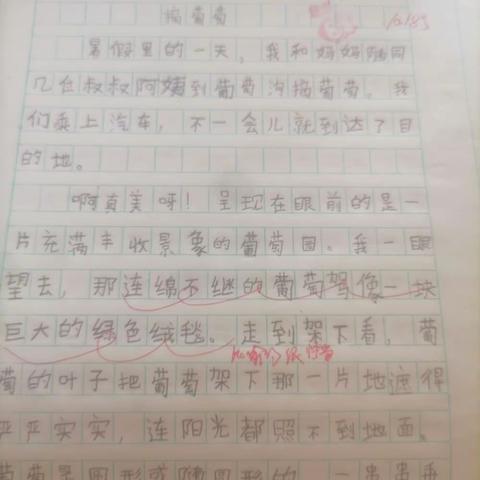 摘葡萄
暑假里的一天，我和妈妈随同
几位叔叔阿姨到葡萄沟摘葡萄。我
们乘上汽车，不一会儿就到达了目
的地。
啊真美呀！呈现在眼前的是一
片充满丰收景象的葡萄园。我一眼
望去，那连绵不继的葡萄驾像一块
巨大的绿色绒毯。走到架下看，葡
萄的叶子把葡萄架下那一片地遮得
严严实实，连阳光都照不到地面。
葡萄是圆形或椭圆形的，一串串垂